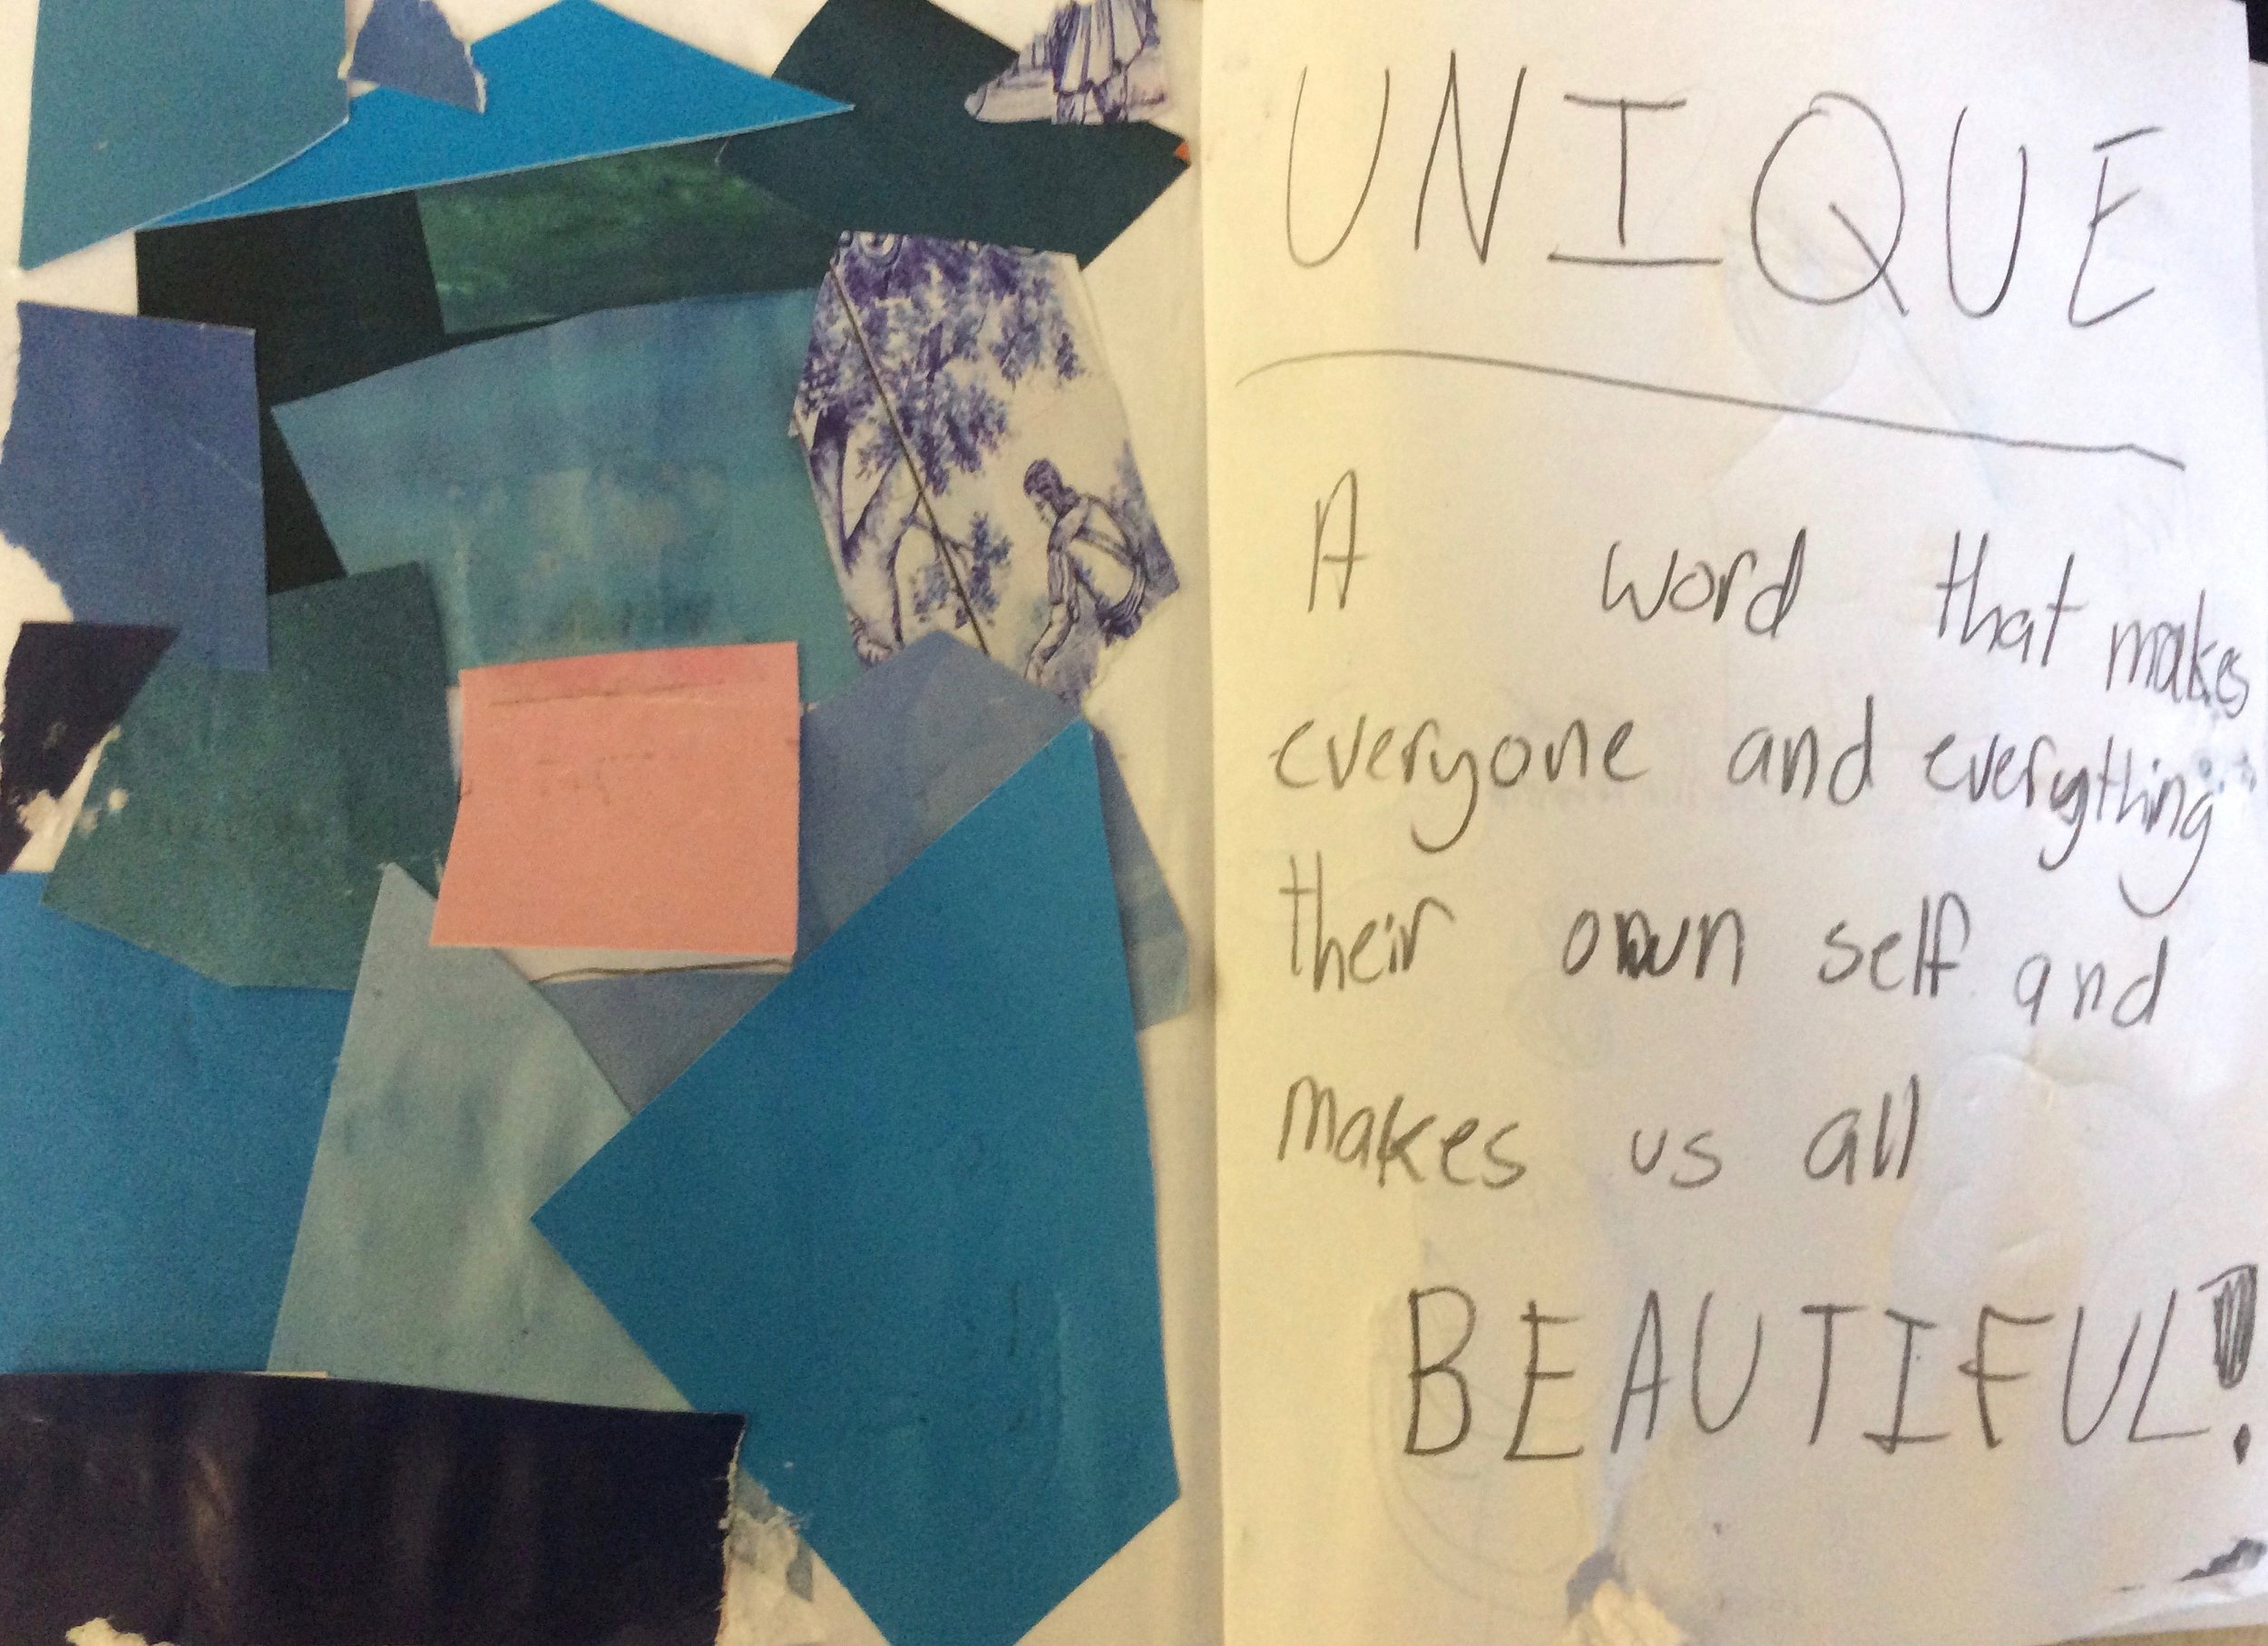 UNIQUE
A word that makes
everyone and everything
their own self and
makes us all
BEAUTIFUL!